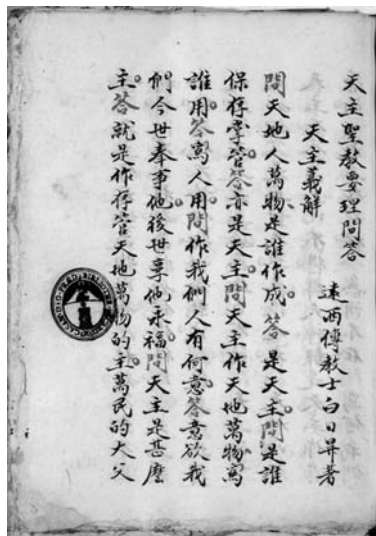 天主聖教要理問答
遠西傳教士白日升著
天主義解
問天地人萬物是誰作成答是天主問是誰
保存掌管答亦是天主問天主作天地萬物為
誰用答為人用問作我們人有何意答意欲我
們今世奉事他後世享他永福問天主是甚麼
主答就是作存管天地萬物的主萬民的大父